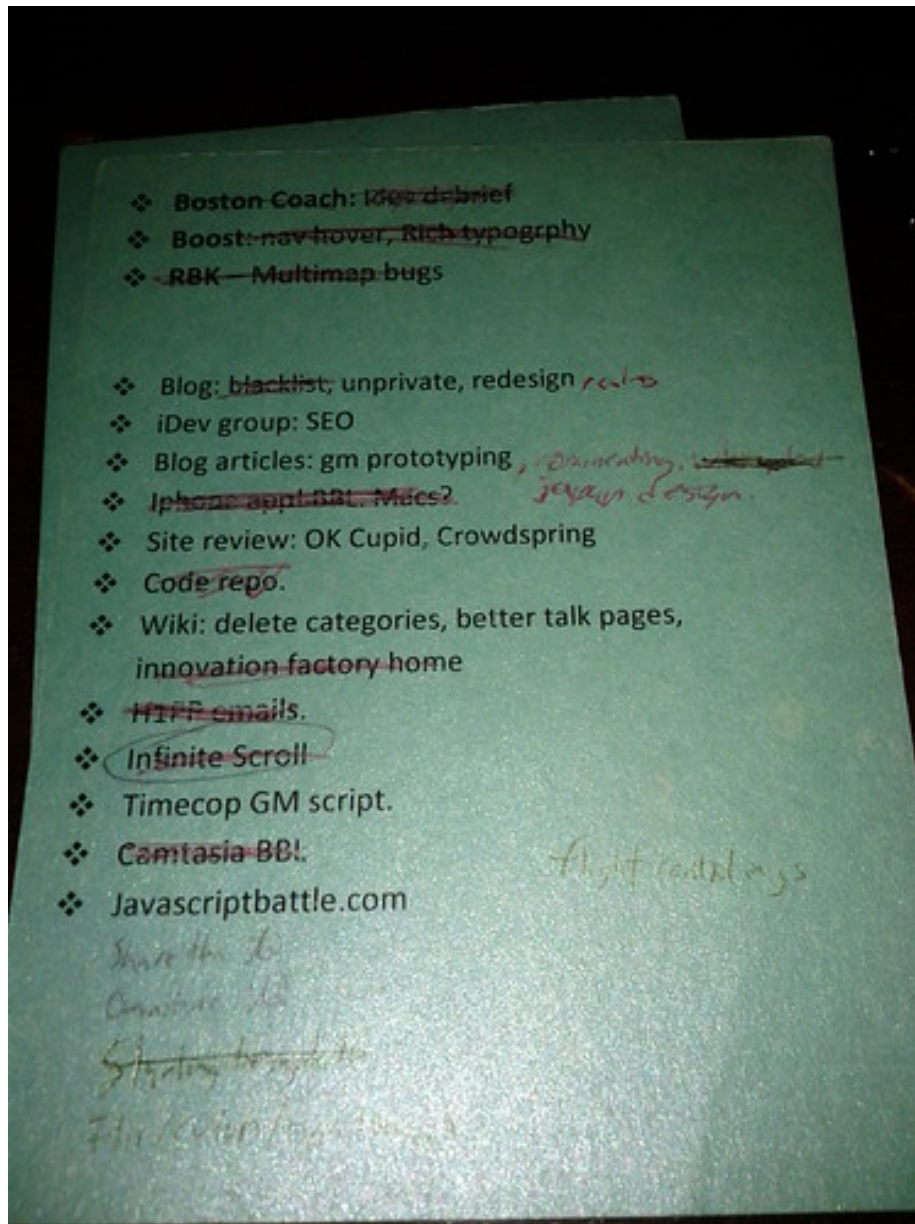 ❖ Boston Coach: idev debrief
❖ Boost: nav hover, Rich typogrphy
❖ RBK – Multimap bugs
❖ Blog: blacklist, unprivate, redesign
❖ iDev group: SEO
❖ Blog articles: gm prototyping, commenting,
❖ Iphone app! BBL. Macs? design.
❖ Site review: OK Cupid, Crowdspring
❖ Code repo.
❖ Wiki: delete categories, better talk pages,
innovation factory home
❖ emails.
❖ Infinite Scroll
❖ Timecop GM script.
❖ Camtasia BBL.
❖ Javascriptbattle.com
Share the